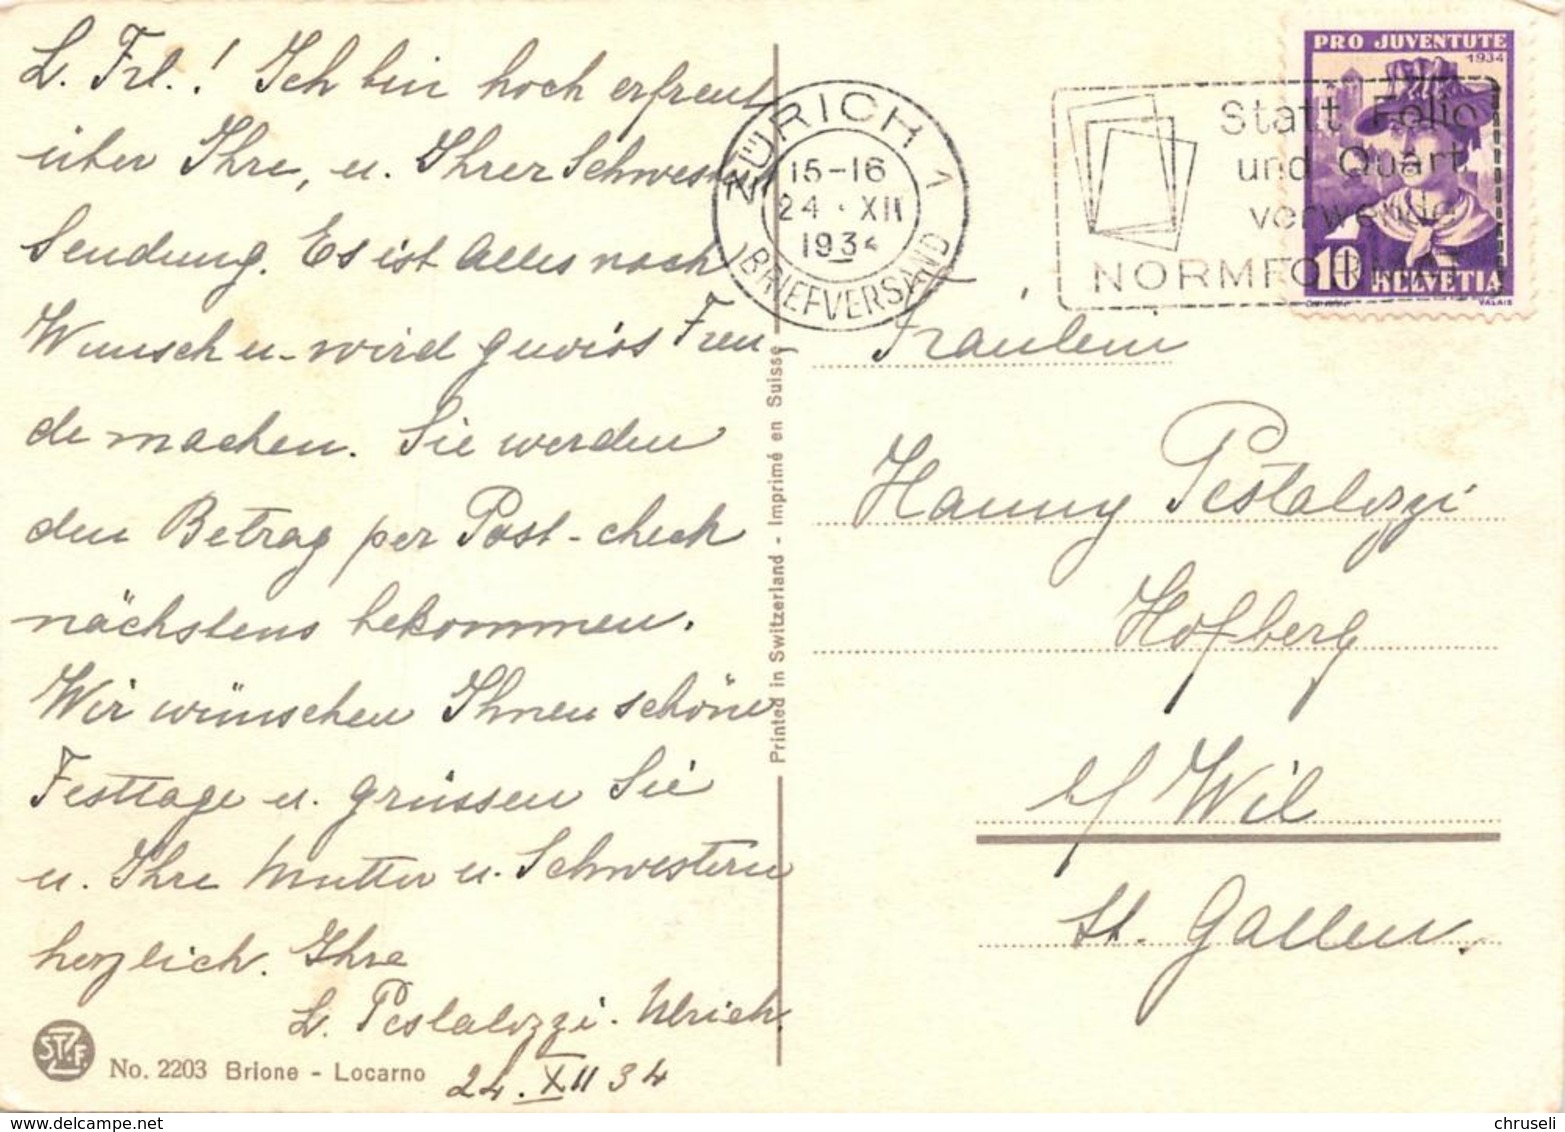 L. Frl.! Ich bin hoch erfreut
über Ihre, u. Ihrer Schwester
Sendung. Es ist Alles nach
Wunsch u. wird gewiss Freu-
de machen. Sie werden
den Betrag per Post-check
nächstens bekommen.
Wir wünschen Ihnen schöne
Festtage u. grüssen Sie
u. Ihre Mutter u. Schwestern
herzlich. Ihre
L. Pestalozzi-Ulrich.
24. XII 34
ST.Z.F.
No. 2203 Brione - Locarno
Printed in Switzerland - Imprimé en Suisse
ZÜRICH 1
15-16
24. XII
1934
BRIEFVERSAND
Statt Folio
und Quart
verwende
NORMFORMAT
PRO JUVENTUTE
1934
10 HELVETIA
VALAIS
Fräulein
Hanny Pestalozzi
Hofberg
b/ Wil
St. Gallen.
WWW.DELCAMPE.NET
chruseli